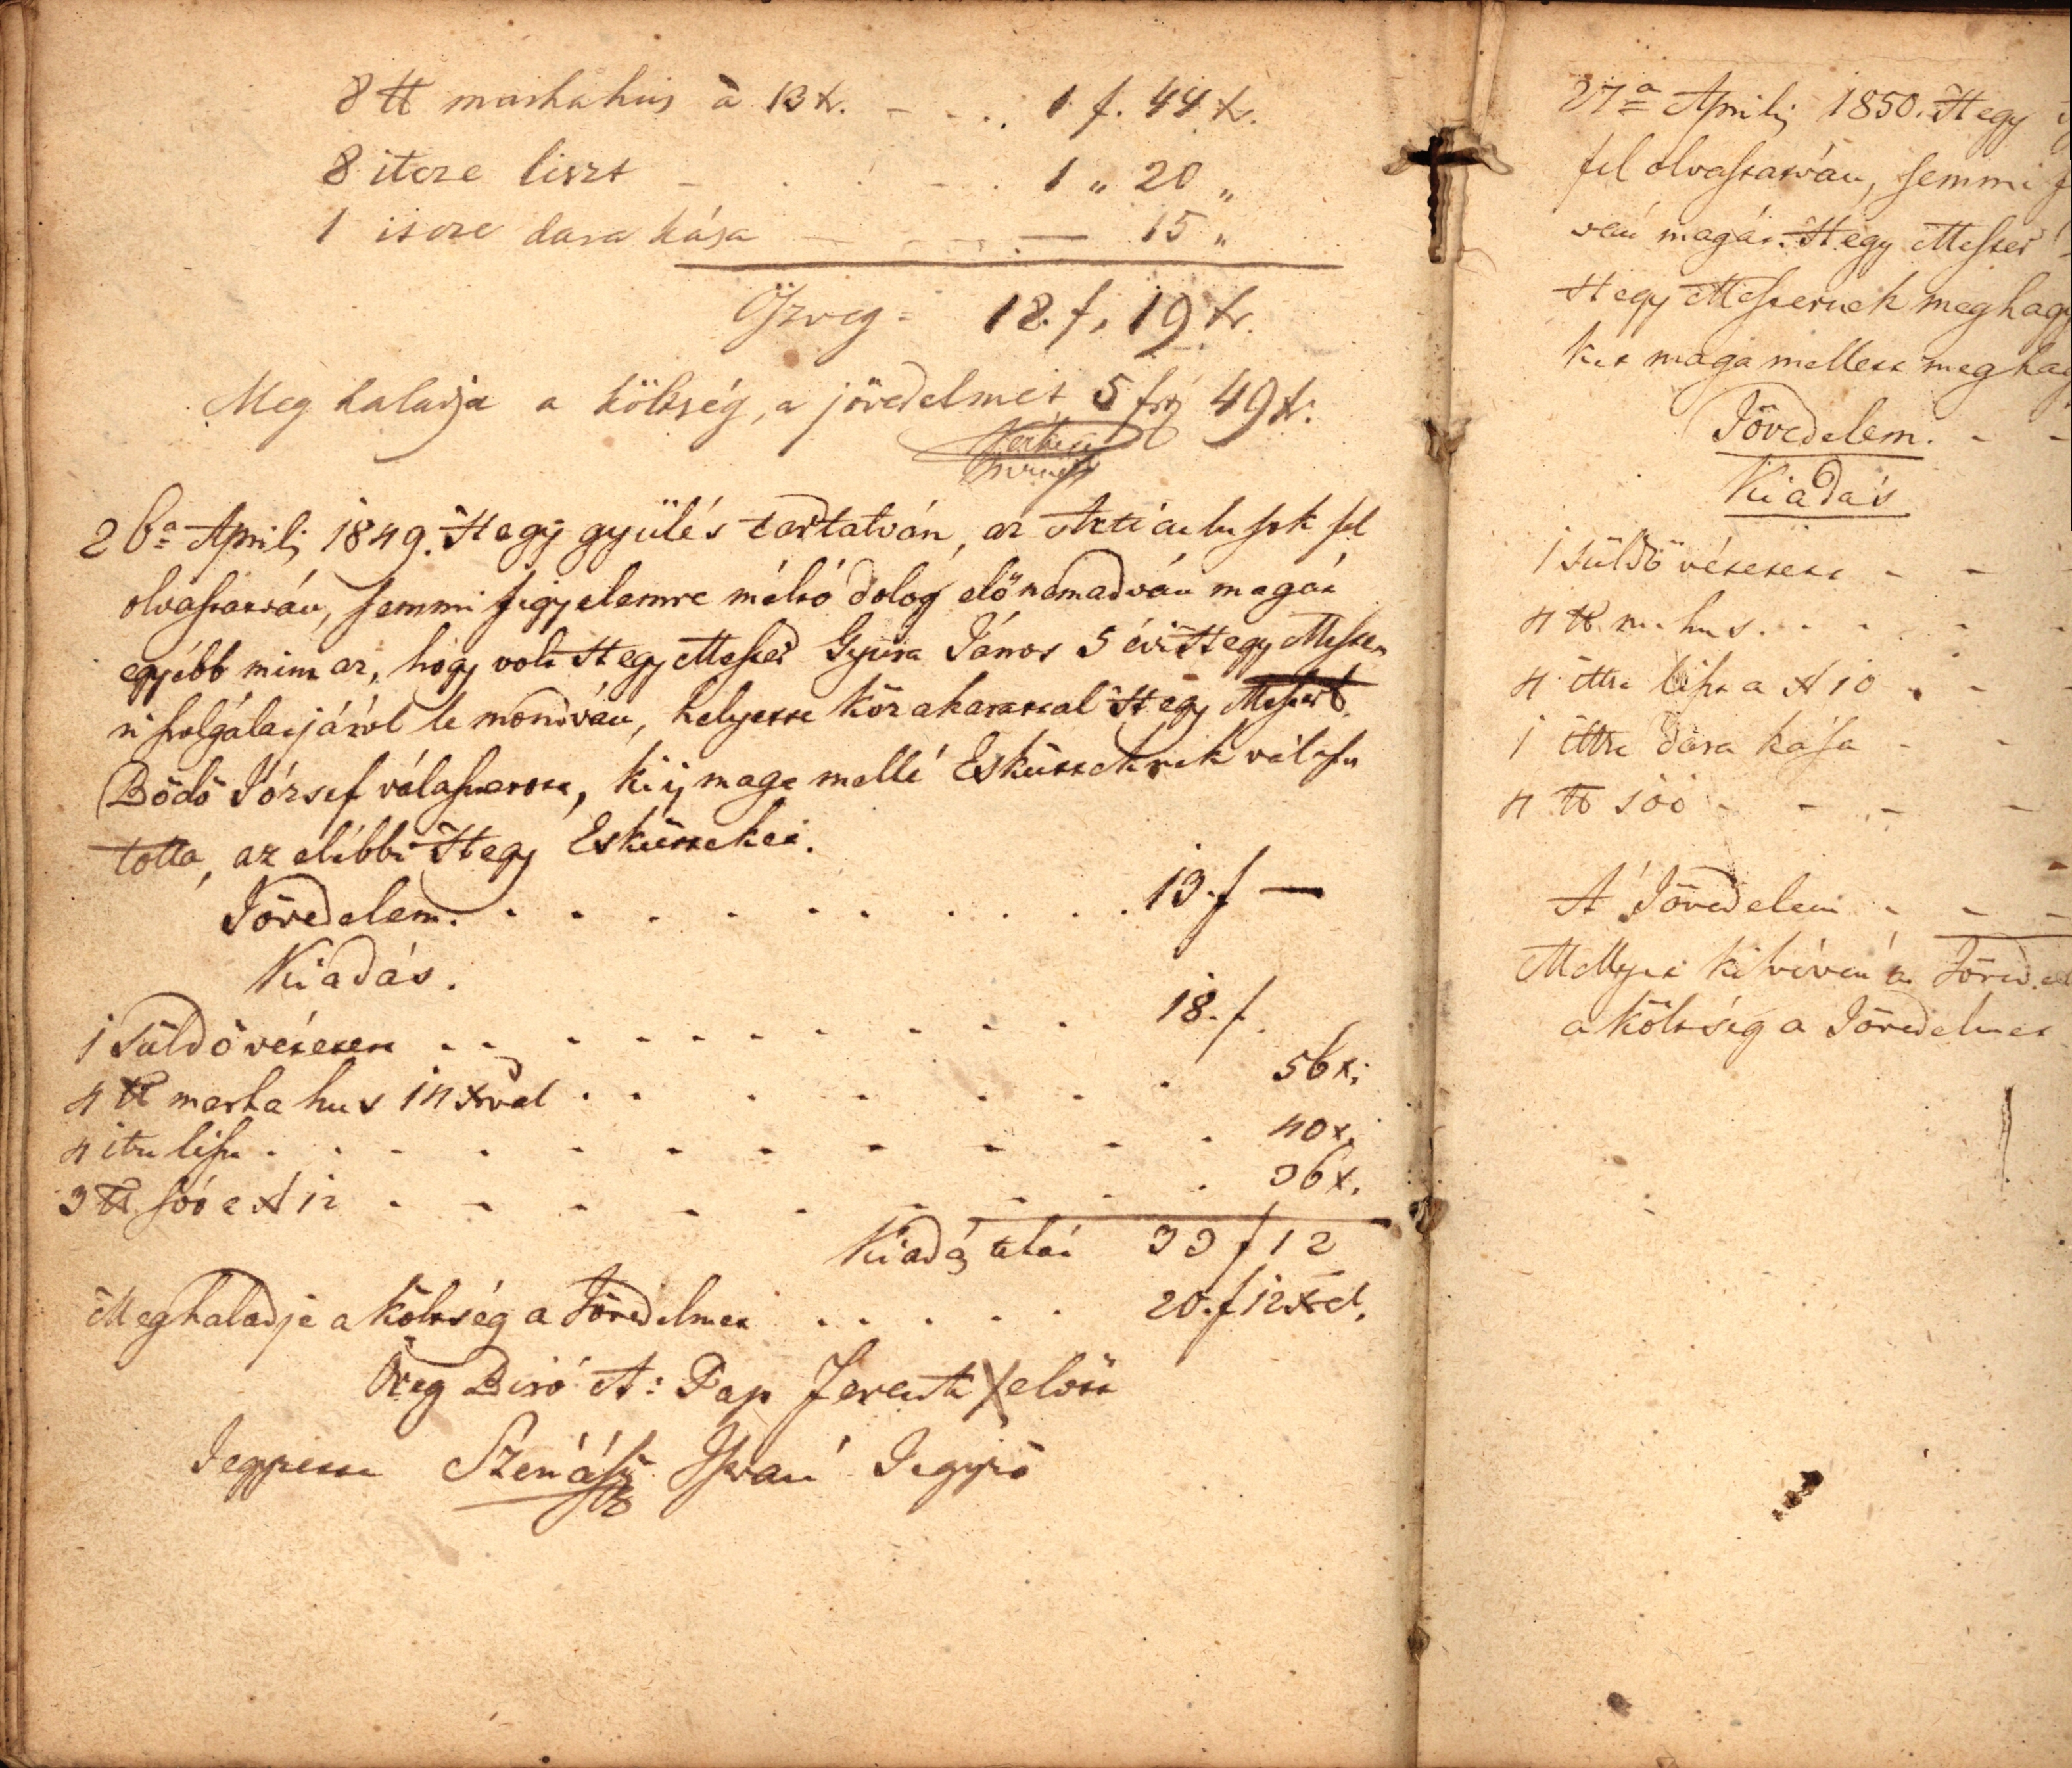 8 ℔ marhahús à 13 kr. - - . . 1 f. 44 kr.
8 itcze liszt - . . - . . 1 „ 20 „
1 itcze dara kása - - - - 15 „
Öszveg = 18. f. 19 kr.
Meg haladja a költség, a jövedelmet 5 frt 49 kr.
26a Aprilij 1849. Hegy gyülés tartatván, az Articulusok fel
olvastatván, semmi figyelemre méltó dolog elő nem advánn magát
egyébb mint az, hogy volt Hegy Mester Gyura János 5 évi Hegy Meste
ri szolgálatjáról le mondván, helyette köz akarattal Hegy Mestert
Bödő Jósef választatott, ki ij maga mellé Eskütteknek válasz
totta, az elébbi Hegy Eskütteket.
Jövedelem. . . . . . . . . . 13. f —
Kiadás.
1 Süldő vétetett . . . . . . . . . 18. f.
4 ℔ marha hus 14 xrval . . . . . . . 56 x.
4 itze liszt . . . . . . . . . . . 40 x.
3 ℔ sóó a 12 . . . . . . . . . 36 x.
Kiadás tehát 33 f 12
Meghaladja a költség a Jövedelmet . . . . 20. f 12 xrel.
Öreg Biró A: Pap Ferentz X előtt
Jegyzette Szénássy Istvan Jegyző
27a Aprilij 1850. Hegy
fel olvastatván, semmi
ván magát. Hegy Mester
Hegy Mesternek meghagy
ket maga mellett meghag
Jövedelem. - -
Kiadás
1 süldő vétetett - -
4 ℔ m. hus. . . . .
4 ittze liszt a 10 . . -
1 ittze dara kása - -
4 ℔ sóó - - - -
A Jövedelem - - -
Mellyet ki vévén a Jöved.
a költség a Jövedelmet